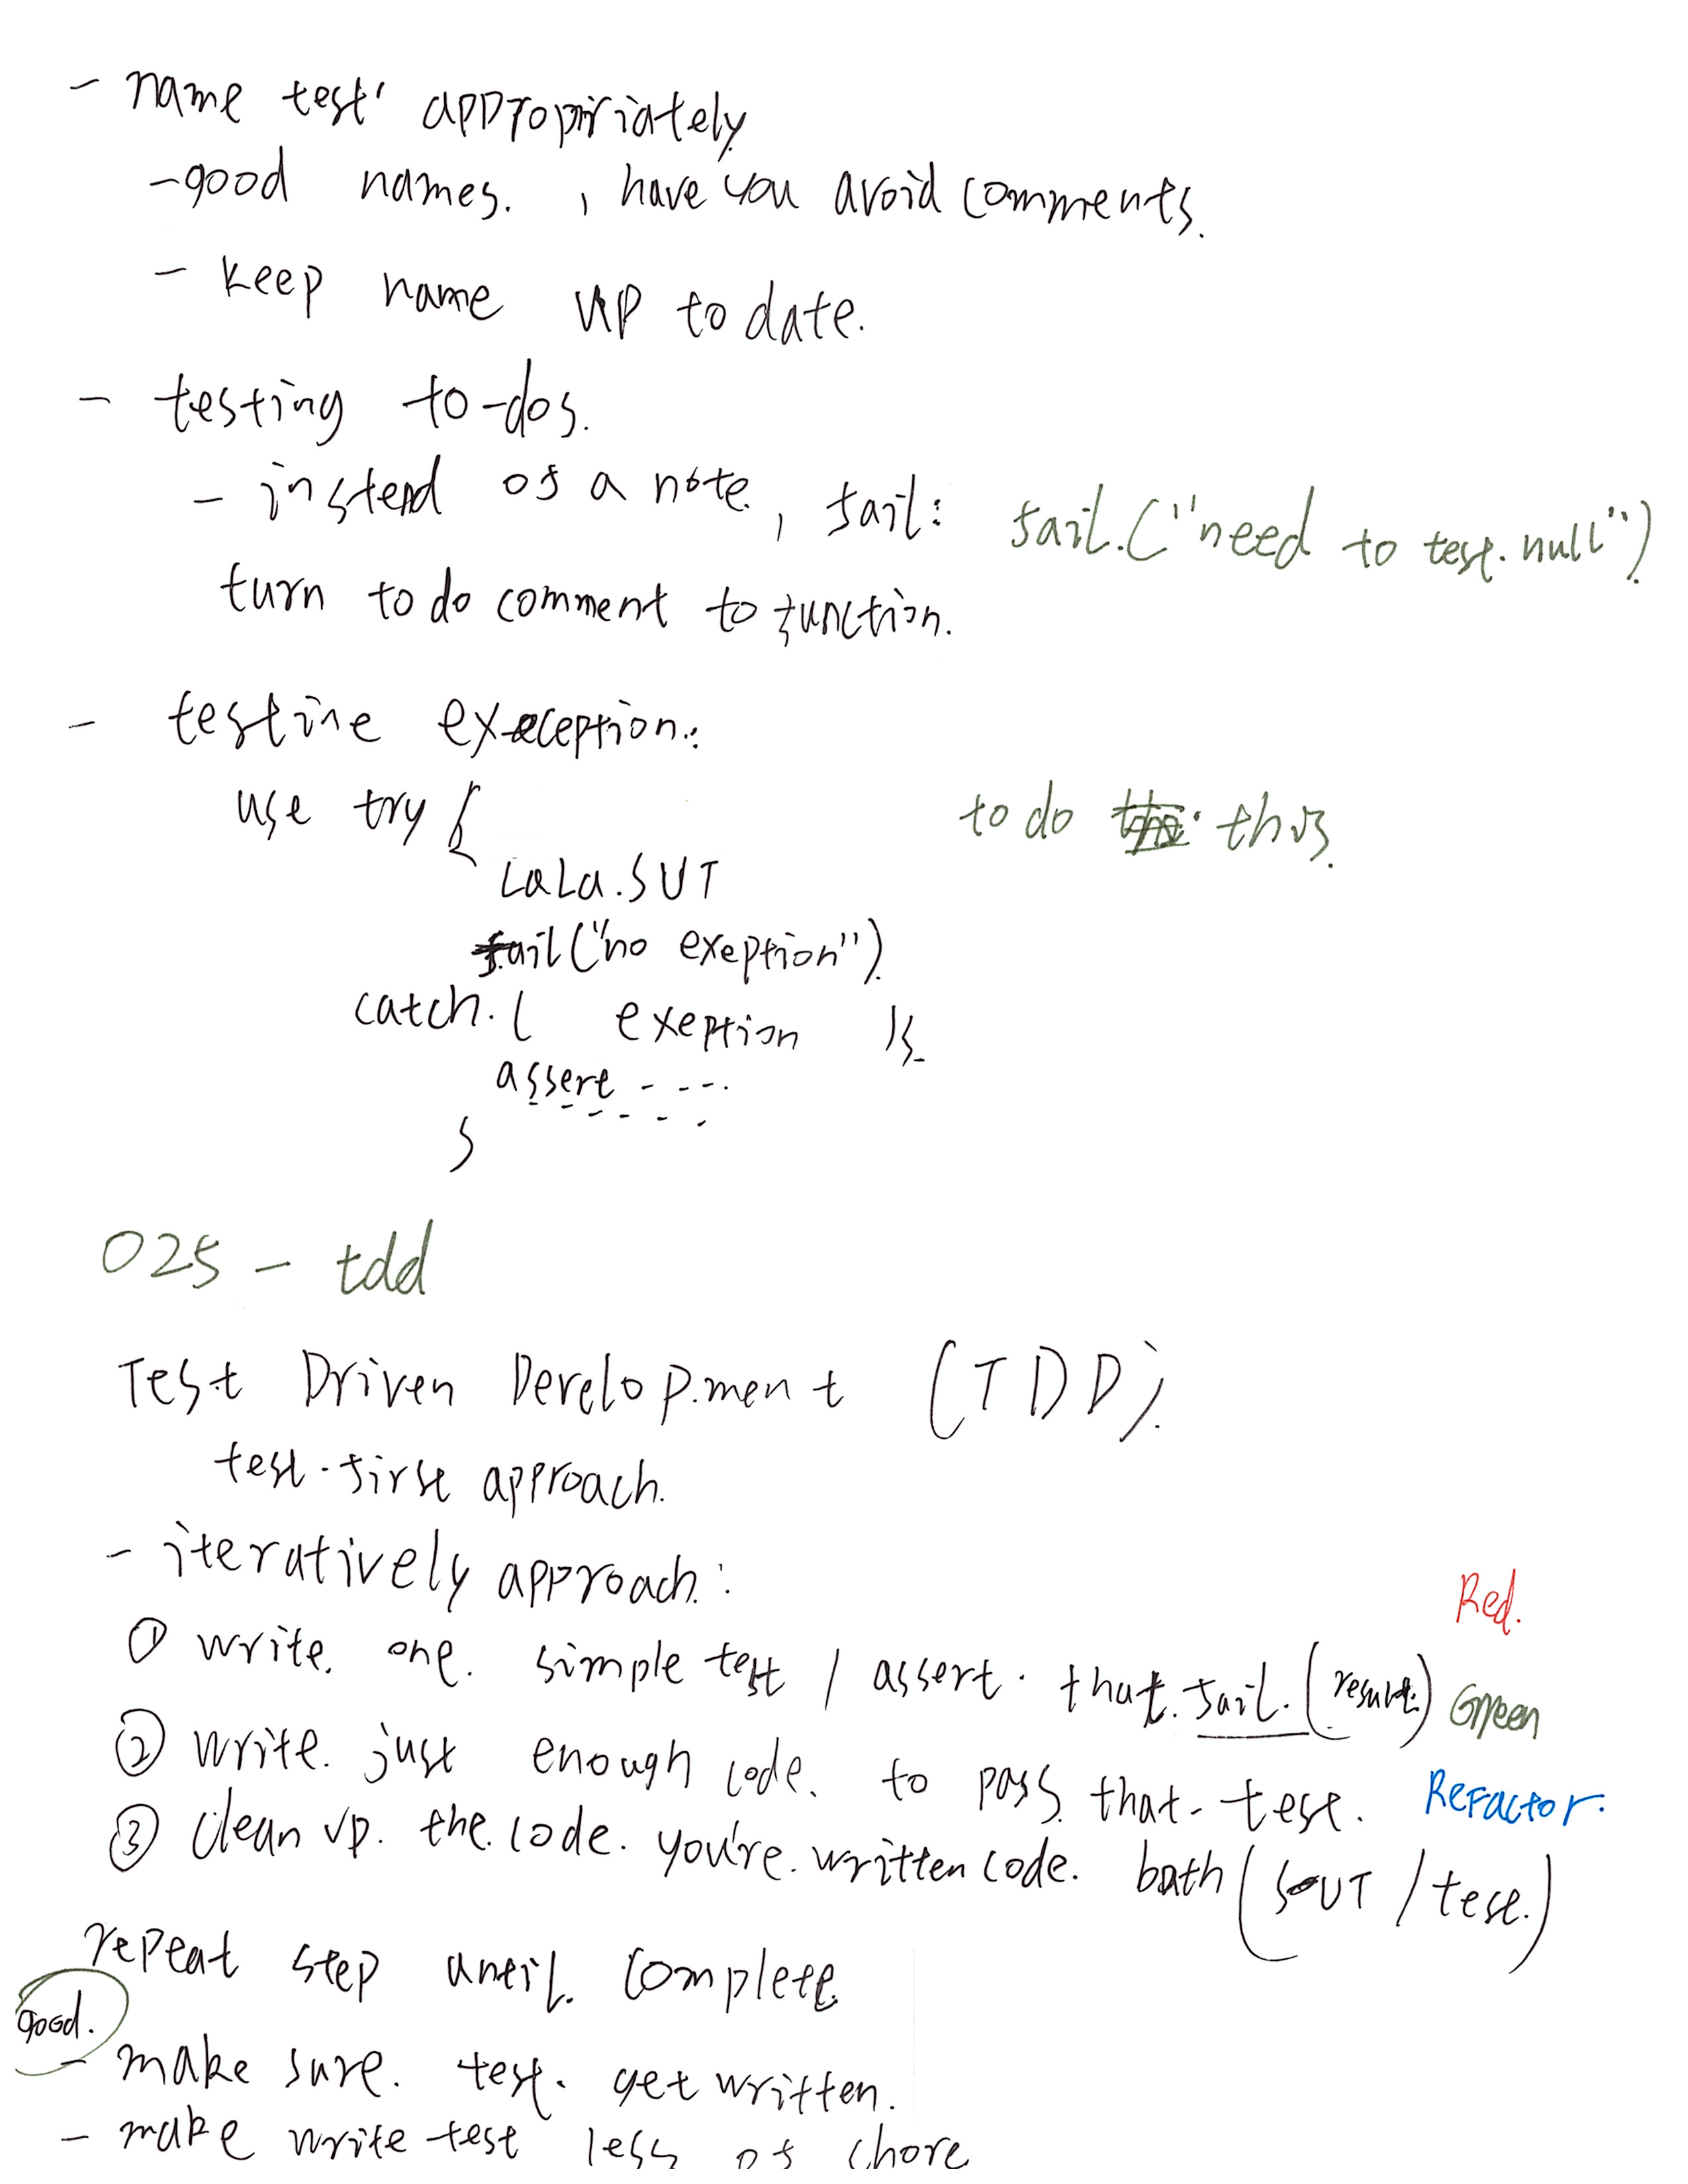 - name test' appropiriately
- good names. , have you avoid comments.
- keep name up to date.
- testing to-dos.
- instead of a note, fail: fail.("need to test. null")
turn to do comment to function.
- testine exception:
use try {
to do this.
LaLa.SUT
fail("no exeption")
catch. ( exeption ){
assert - - - -
}
025 - tdd
Test Driven Development (TDD).
test-first approach.
- iteratively approach:
Red.
① write. one. simple test / assert. that. fail. (result.) Green
② write. just enough code. to pass that- test. Refactor.
③ clean up. the. code. you're. written code. both (SUT / test.)
repeat step until. complete
good.
- make sure. test. get written.
- make write test less of chore